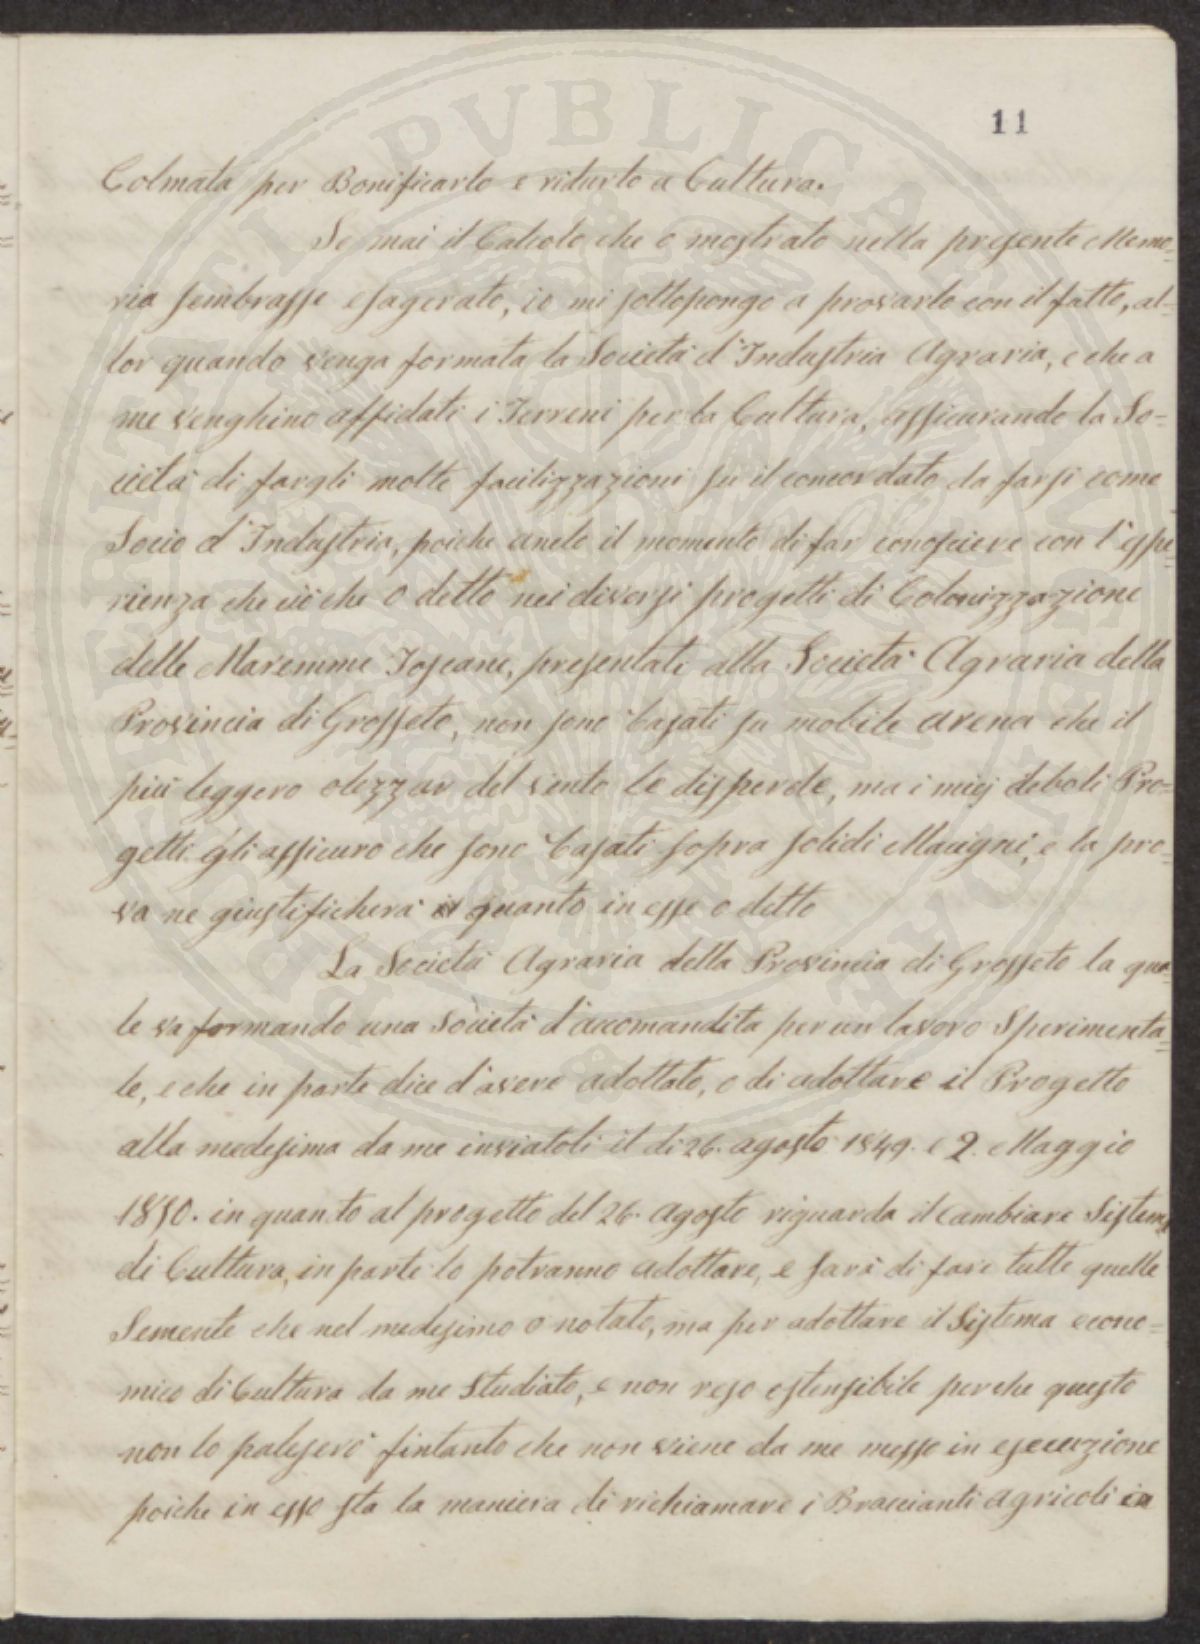 11
Colmata per Bonificarlo e ridurlo a Cultura.
Se mai il Calcolo che o mostrato nella presente Memo=
ria sembrasse esagerato, io mi sottopongo a provarlo con il fatto, al=
lor quando venga formata la Società d'Industria Agraria, e che a
me venghino affidati i Terreni per la Cultura, assicurando la So=
cietà di fargli molte facilizzazioni su il concordato da farsi come
Socio d'Industria, poiche anelo il momento di far conosciere con l'espe=
rienza che ciò che o detto nei diversi progetti di Colonizzazione
delle Maremme Toscane, presentati alla Società Agraria della
Provincia di Grosseto, non sono basati su mobile arena che il
più leggero olezzar del vento le disperde, ma i miej deboli Pro=
getti gli assicuro che sono basati sopra solidi Macigni, e la pro=
va ne giustificherà il quanto in esse o detto
La Società Agraria della Provincia di Grosseto la qua=
le va formando una Società d'accomandita per un lavoro Sperimenta=
le, e che in parte dice d'avere adottato, o di adottare il Progetto
alla medesima da me inviatoli il di 26. agosto 1849. e 2. Maggio
1850. in quanto al progetto del 26. agosto riguarda il cambiare Sistema
di Cultura, in parte lo potranno adottare, e sarà di fare tutte quelle
Semente che nel medesimo o notato, ma per adottare il Sistema econo=
mico di Cultura da me Studiato, e non reso estensibile perche questo
non lo paleserò fintanto che non viene da me messo in esecuzione
poiche in esso sta la maniera di richiamare i Braccianti agricoli in
PERITATI PUBLICAE